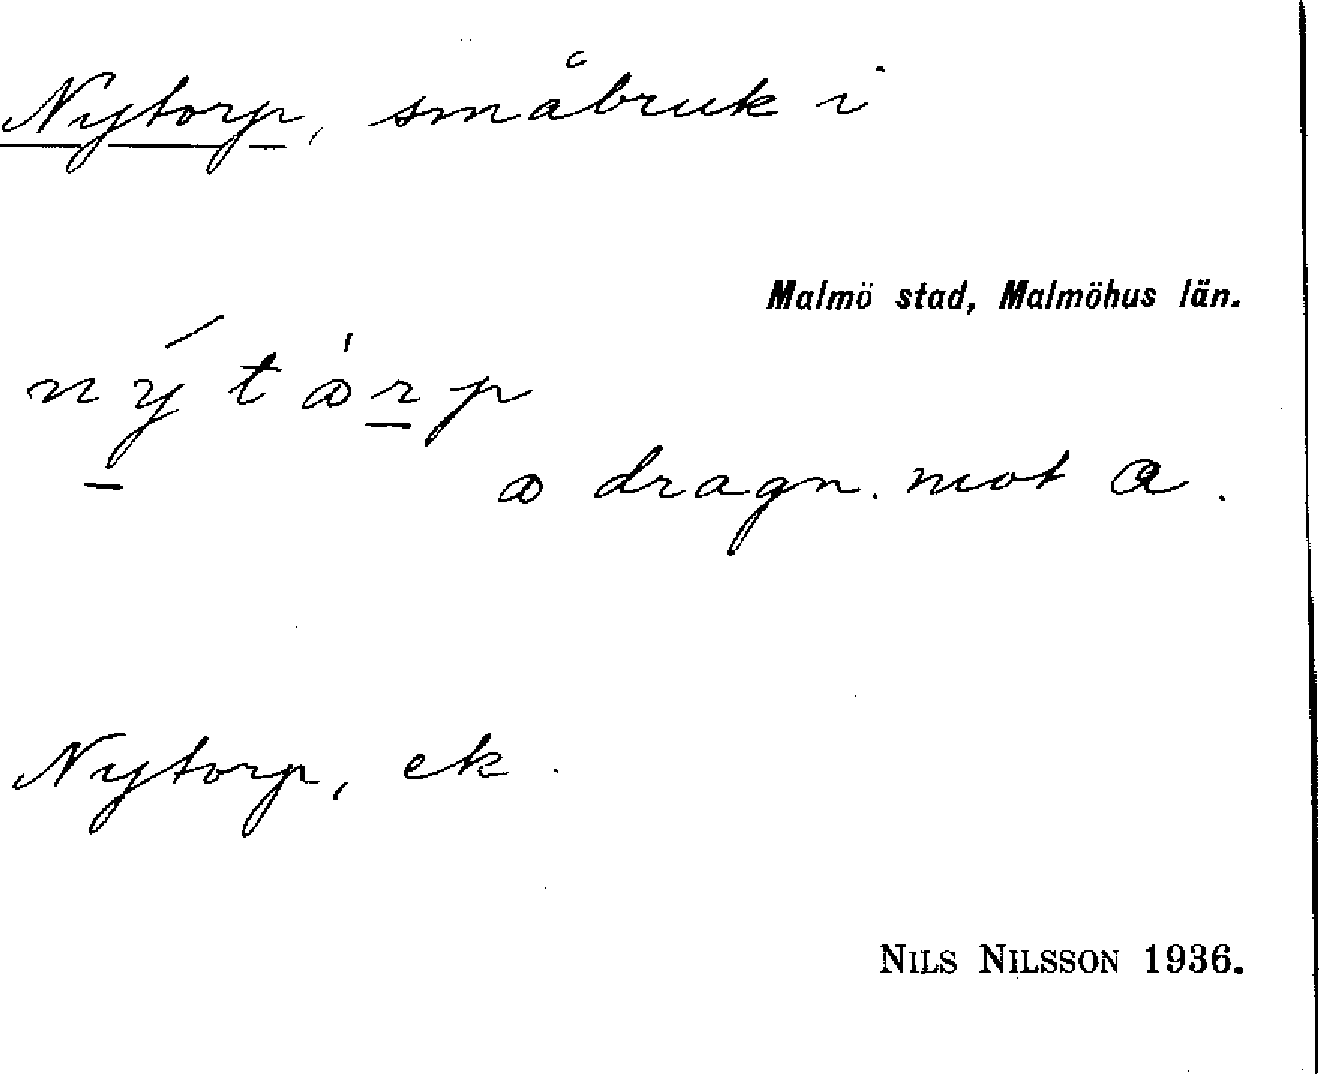 Nytorp, småbruk i
Malmö stad, Malmöhus län.
ný tꭢ́rp
ꭢ dragn. mot a.
Nytorp, ek.
NILS NILSSON 1936.